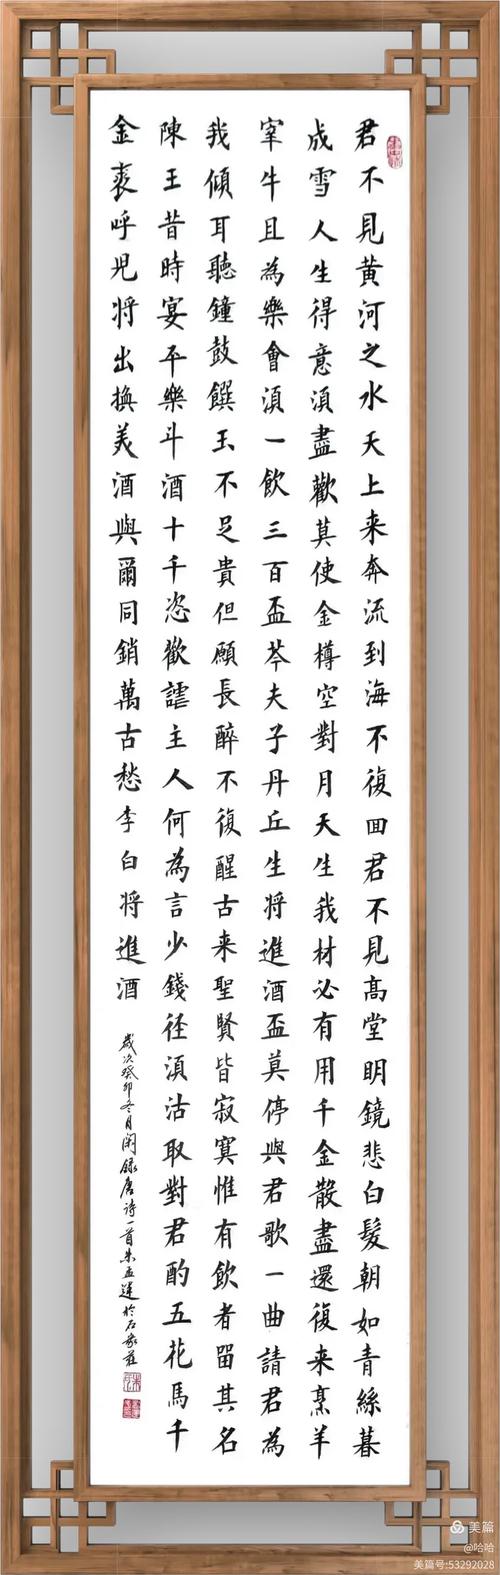 君不見黄河之水天上来奔流到海不復回君不見高堂明鏡悲白髮朝如青絲暮
成雪人生得意須盡歡莫使金樽空對月天生我材必有用千金散盡還復来烹羊
宰牛且為樂會須一飲三百盃岑夫子丹丘生将進酒盃莫停與君歌一曲請君為
我傾耳聽鐘鼓饌玉不足貴但願長醉不復醒古来聖賢皆寂寞惟有飲者留其名
陳王昔時宴平樂斗酒十千恣歡謔主人何為言少錢径須沽取對君酌五花馬千
金裘呼児将出換美酒與爾同銷萬古愁李白将進酒
歲次癸卯冬月閑録唐詩一首朱孟於石家莊
美篇
@哈哈
美篇号:53292028